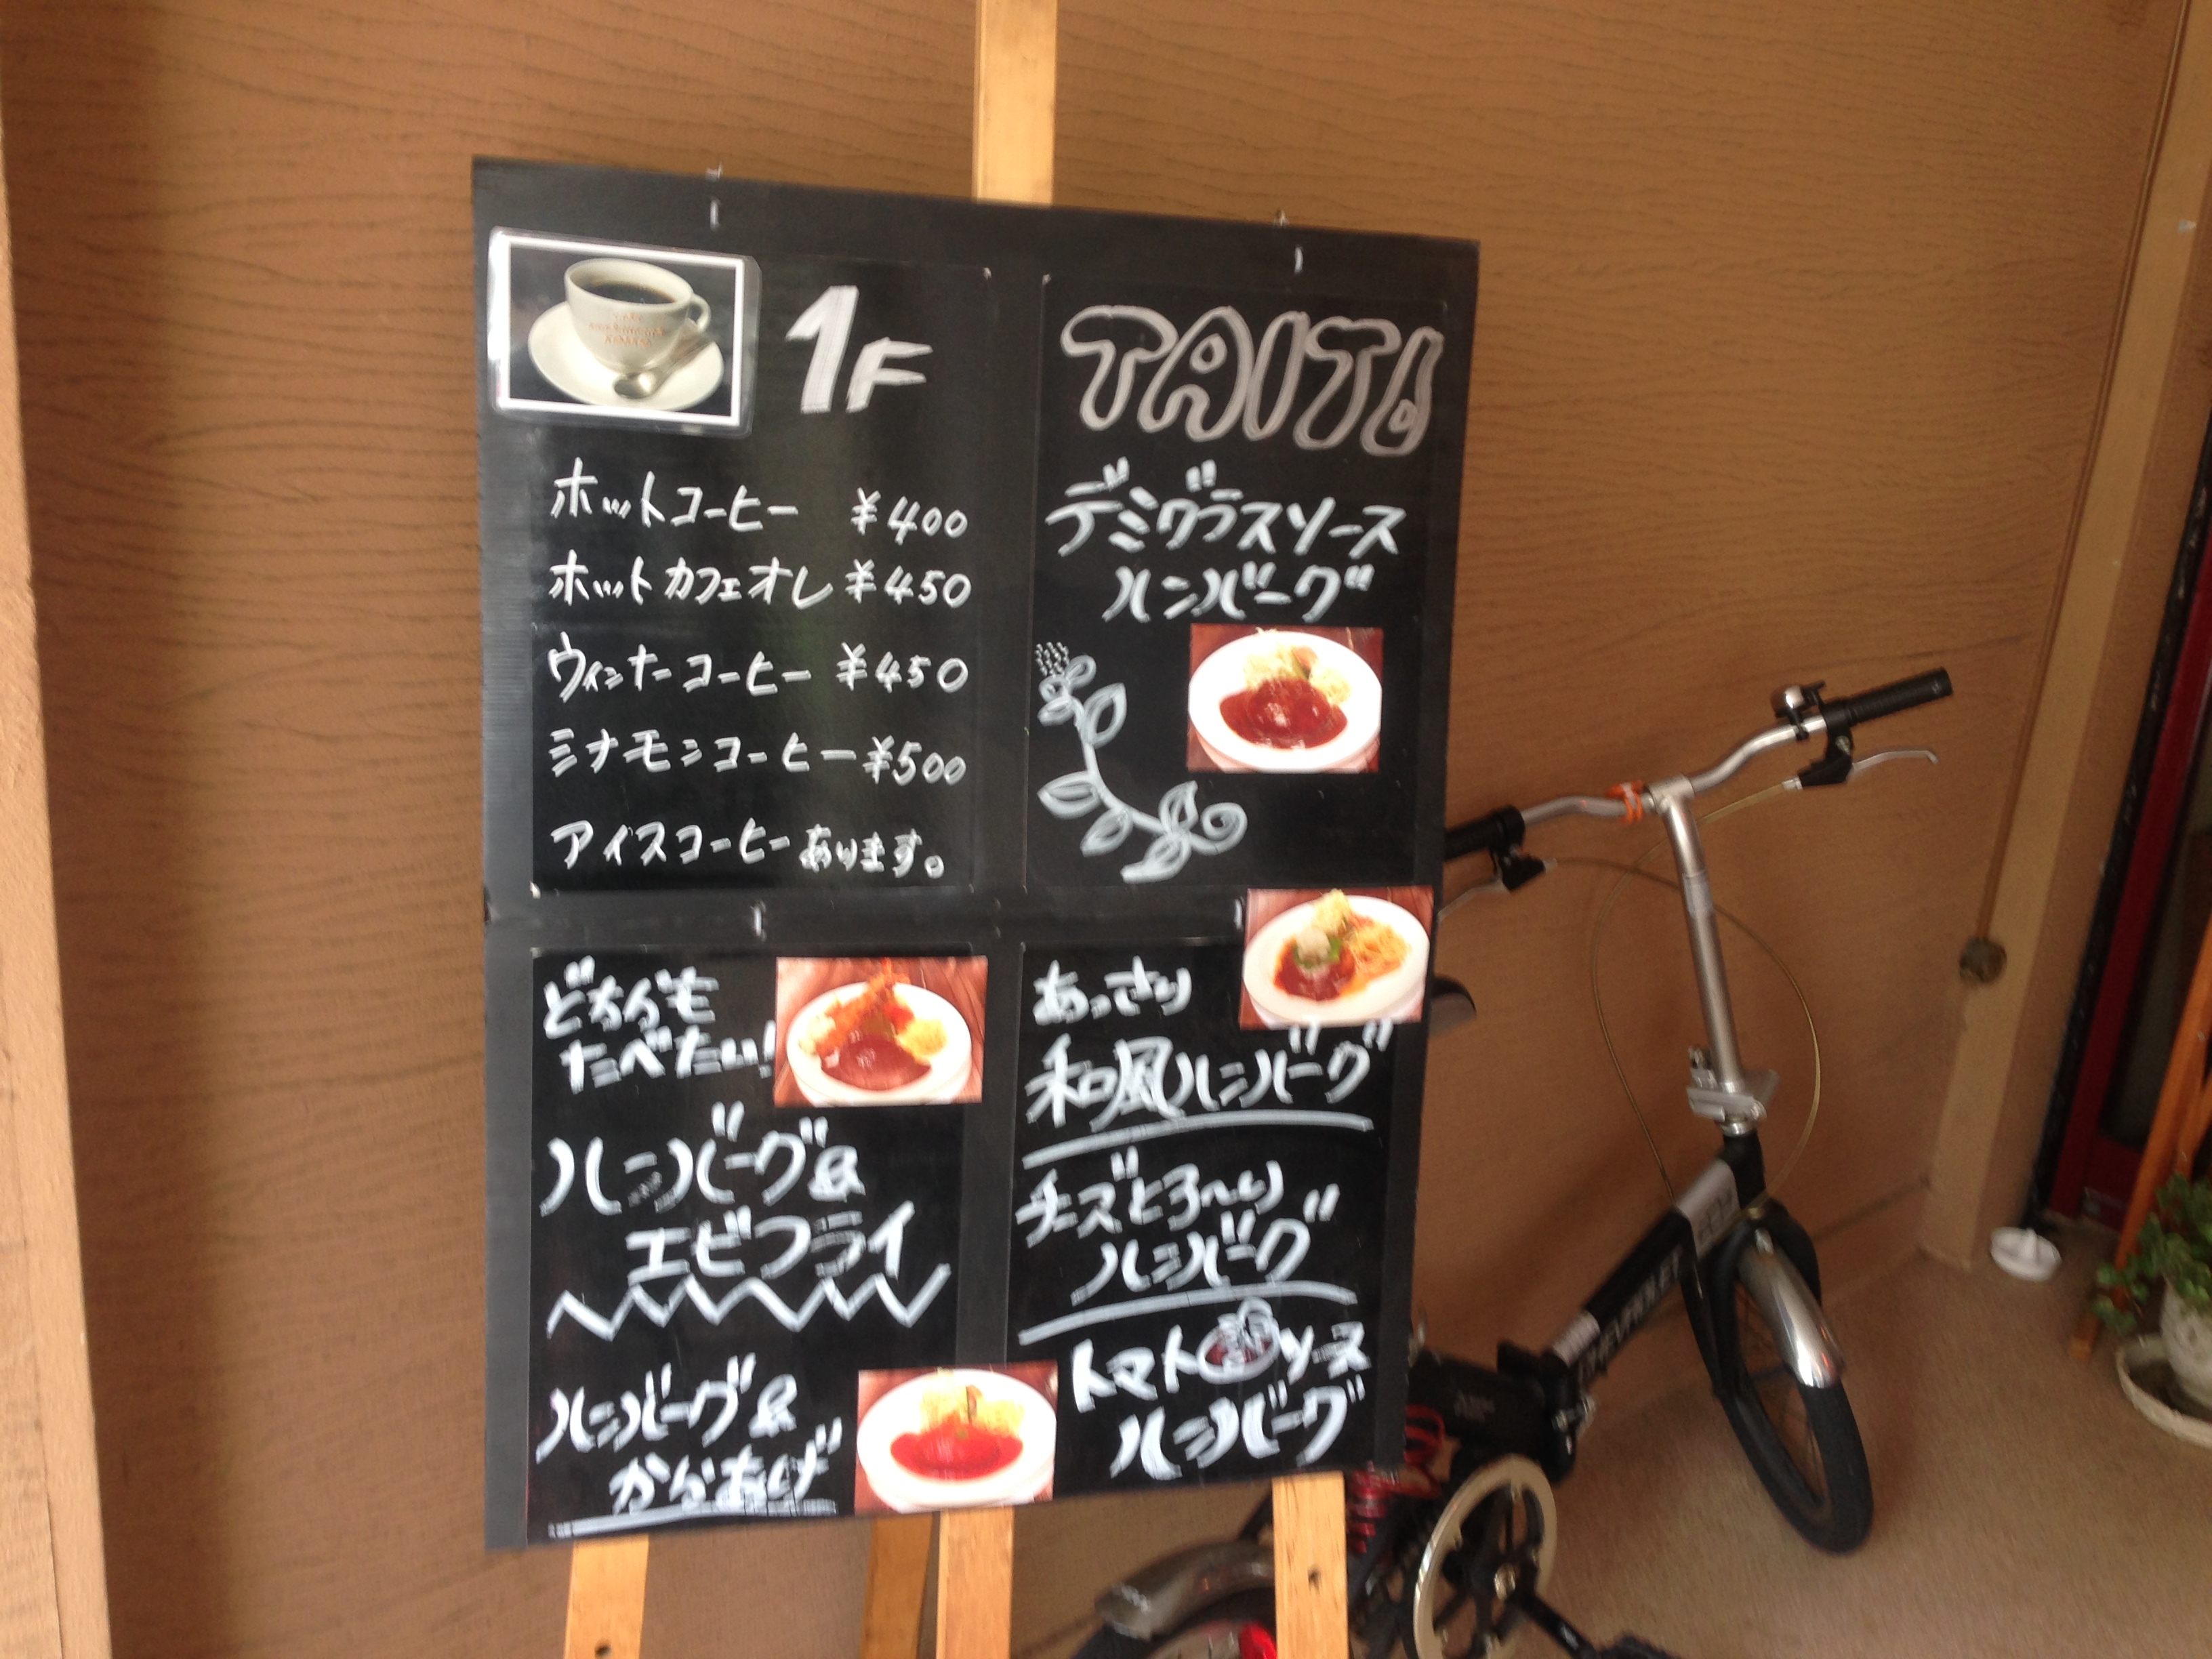 1F
ホットコーヒー ¥400
ホットカフェオレ ¥450
ウィンナーコーヒー ¥450
ミナモンコーヒー ¥500
アイスコーヒーあります。
TAITU
デミグラスソース
ハンバーグ
どちらも
たべたい!
ハンバーグ&
エビフライ
ハンバーグ&
からあげ
あっさり
和風ハンバーグ
チーズとろ〜り
ハンバーグ
トマトソース
ハンバーグ